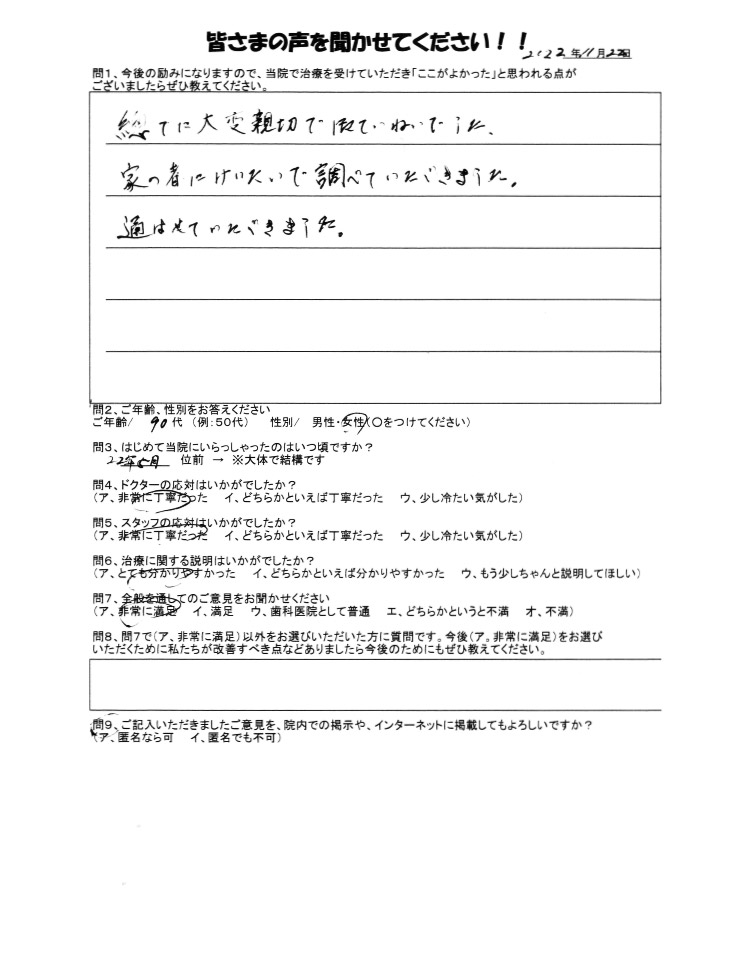 皆さまの声を聞かせてください！！
2022年11月22日
問1、今後の励みになりますので、当院で治療を受けていただき「ここがよかった」と思われる点が
ございましたらぜひ教えてください。
総てに大変親切で ていねいでした、
家の者にけいたいで調べていただきました。
通はせていただきました。
問2、ご年齢、性別をお答えください
ご年齢/ 90代 （例：50代） 性別/ 男性・女性（○をつけてください）
問3、はじめて当院にいらっしゃったのはいつ頃ですか？
22年 月 位前 → ※大体で結構です
問4、ドクターの応対はいかがでしたか？
（ア、非常に丁寧だった イ、どちらかといえば丁寧だった ウ、少し冷たい気がした）
問5、スタッフの応対はいかがでしたか？
（ア、非常に丁寧だった イ、どちらかといえば丁寧だった ウ、少し冷たい気がした）
問6、治療に関する説明はいかがでしたか？
（ア、とても分かりやすかった イ、どちらかといえば分かりやすかった ウ、もう少しちゃんと説明してほしい）
問7、全般を通してのご意見をお聞かせください
（ア、非常に満足 イ、満足 ウ、歯科医院として普通 エ、どちらかというと不満 オ、不満）
問8、問7で（ア、非常に満足）以外をお選びいただいた方に質問です。今後（ア。非常に満足）をお選び
いただくために私たちが改善すべき点などありましたら今後のためにもぜひ教えてください。
問9、ご記入いただきましたご意見を、院内での掲示や、インターネットに掲載してもよろしいですか？
（ア、匿名なら可 イ、匿名でも不可）